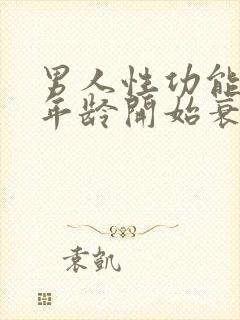 男人性功能
年龄開始衰
袁凯